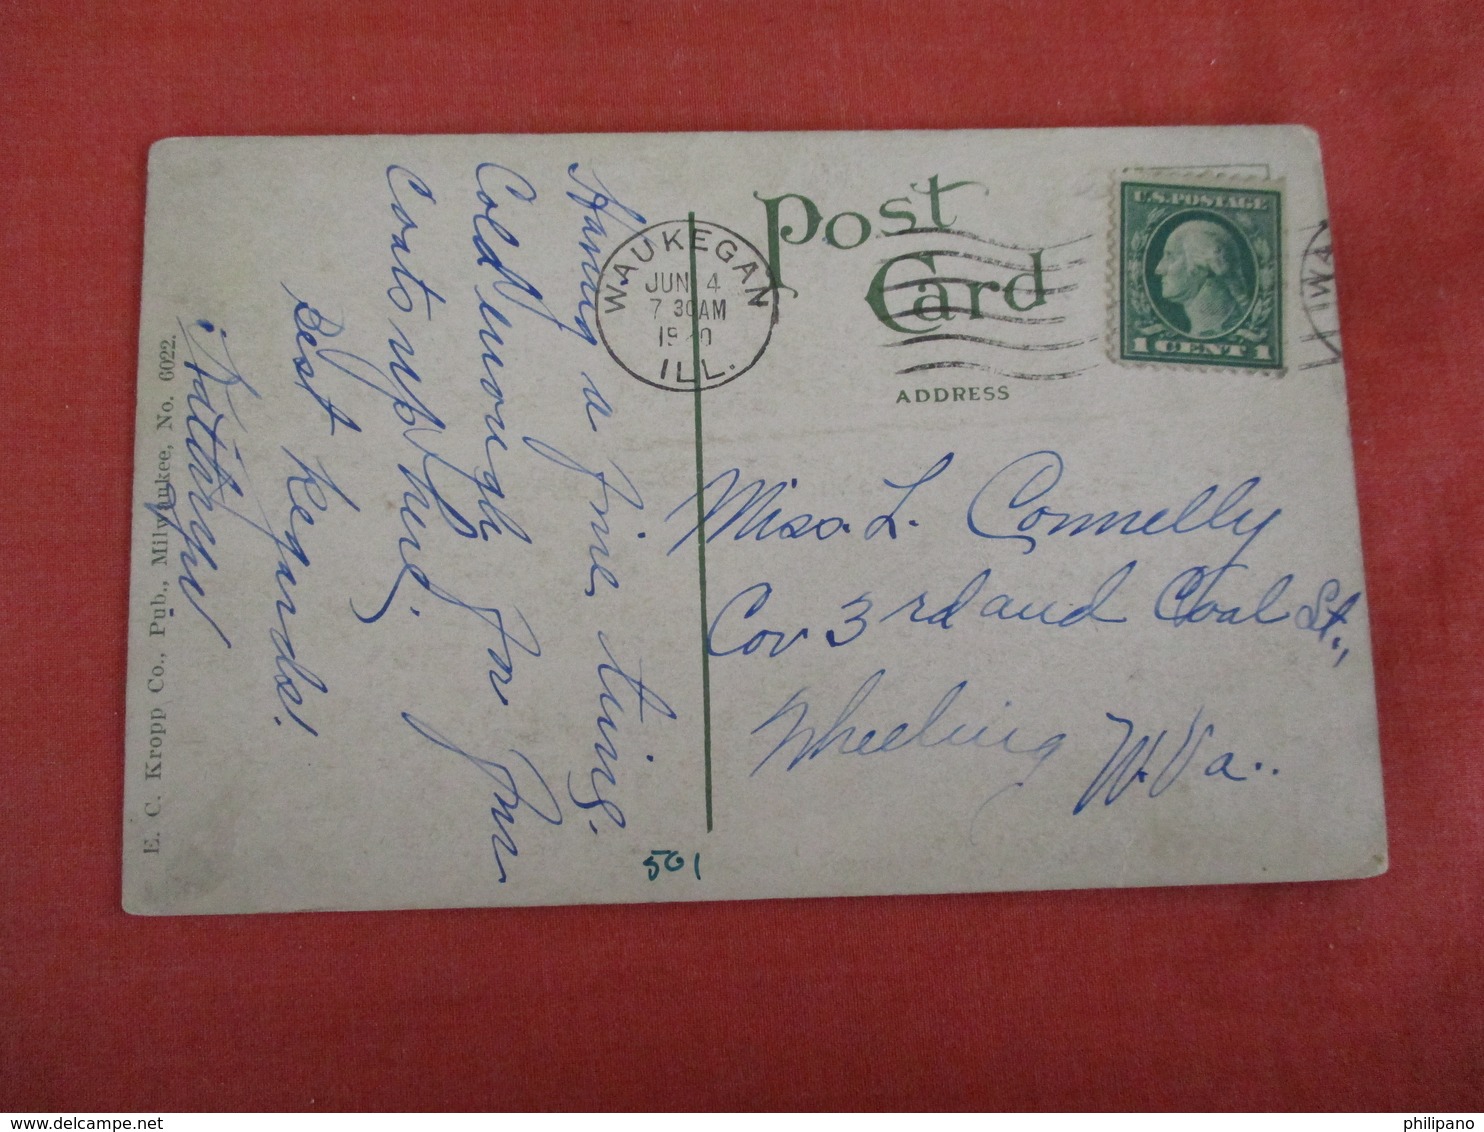 Post
Card
U.S. POSTAGE
1 CENT 1
WAUKEGAN
JUN 4
7 30AM
1920
ILL.
ADDRESS
Having a fine time.
Cold enough for fur
Coats up here.
Best Regards.
Miss L. Connelly
Cor 3rd and Coal St.,
Wheeling W. Va..
501
E. C. Kropp Co., Pub., Milwaukee, No. 6022.
delcampe.net
philipano